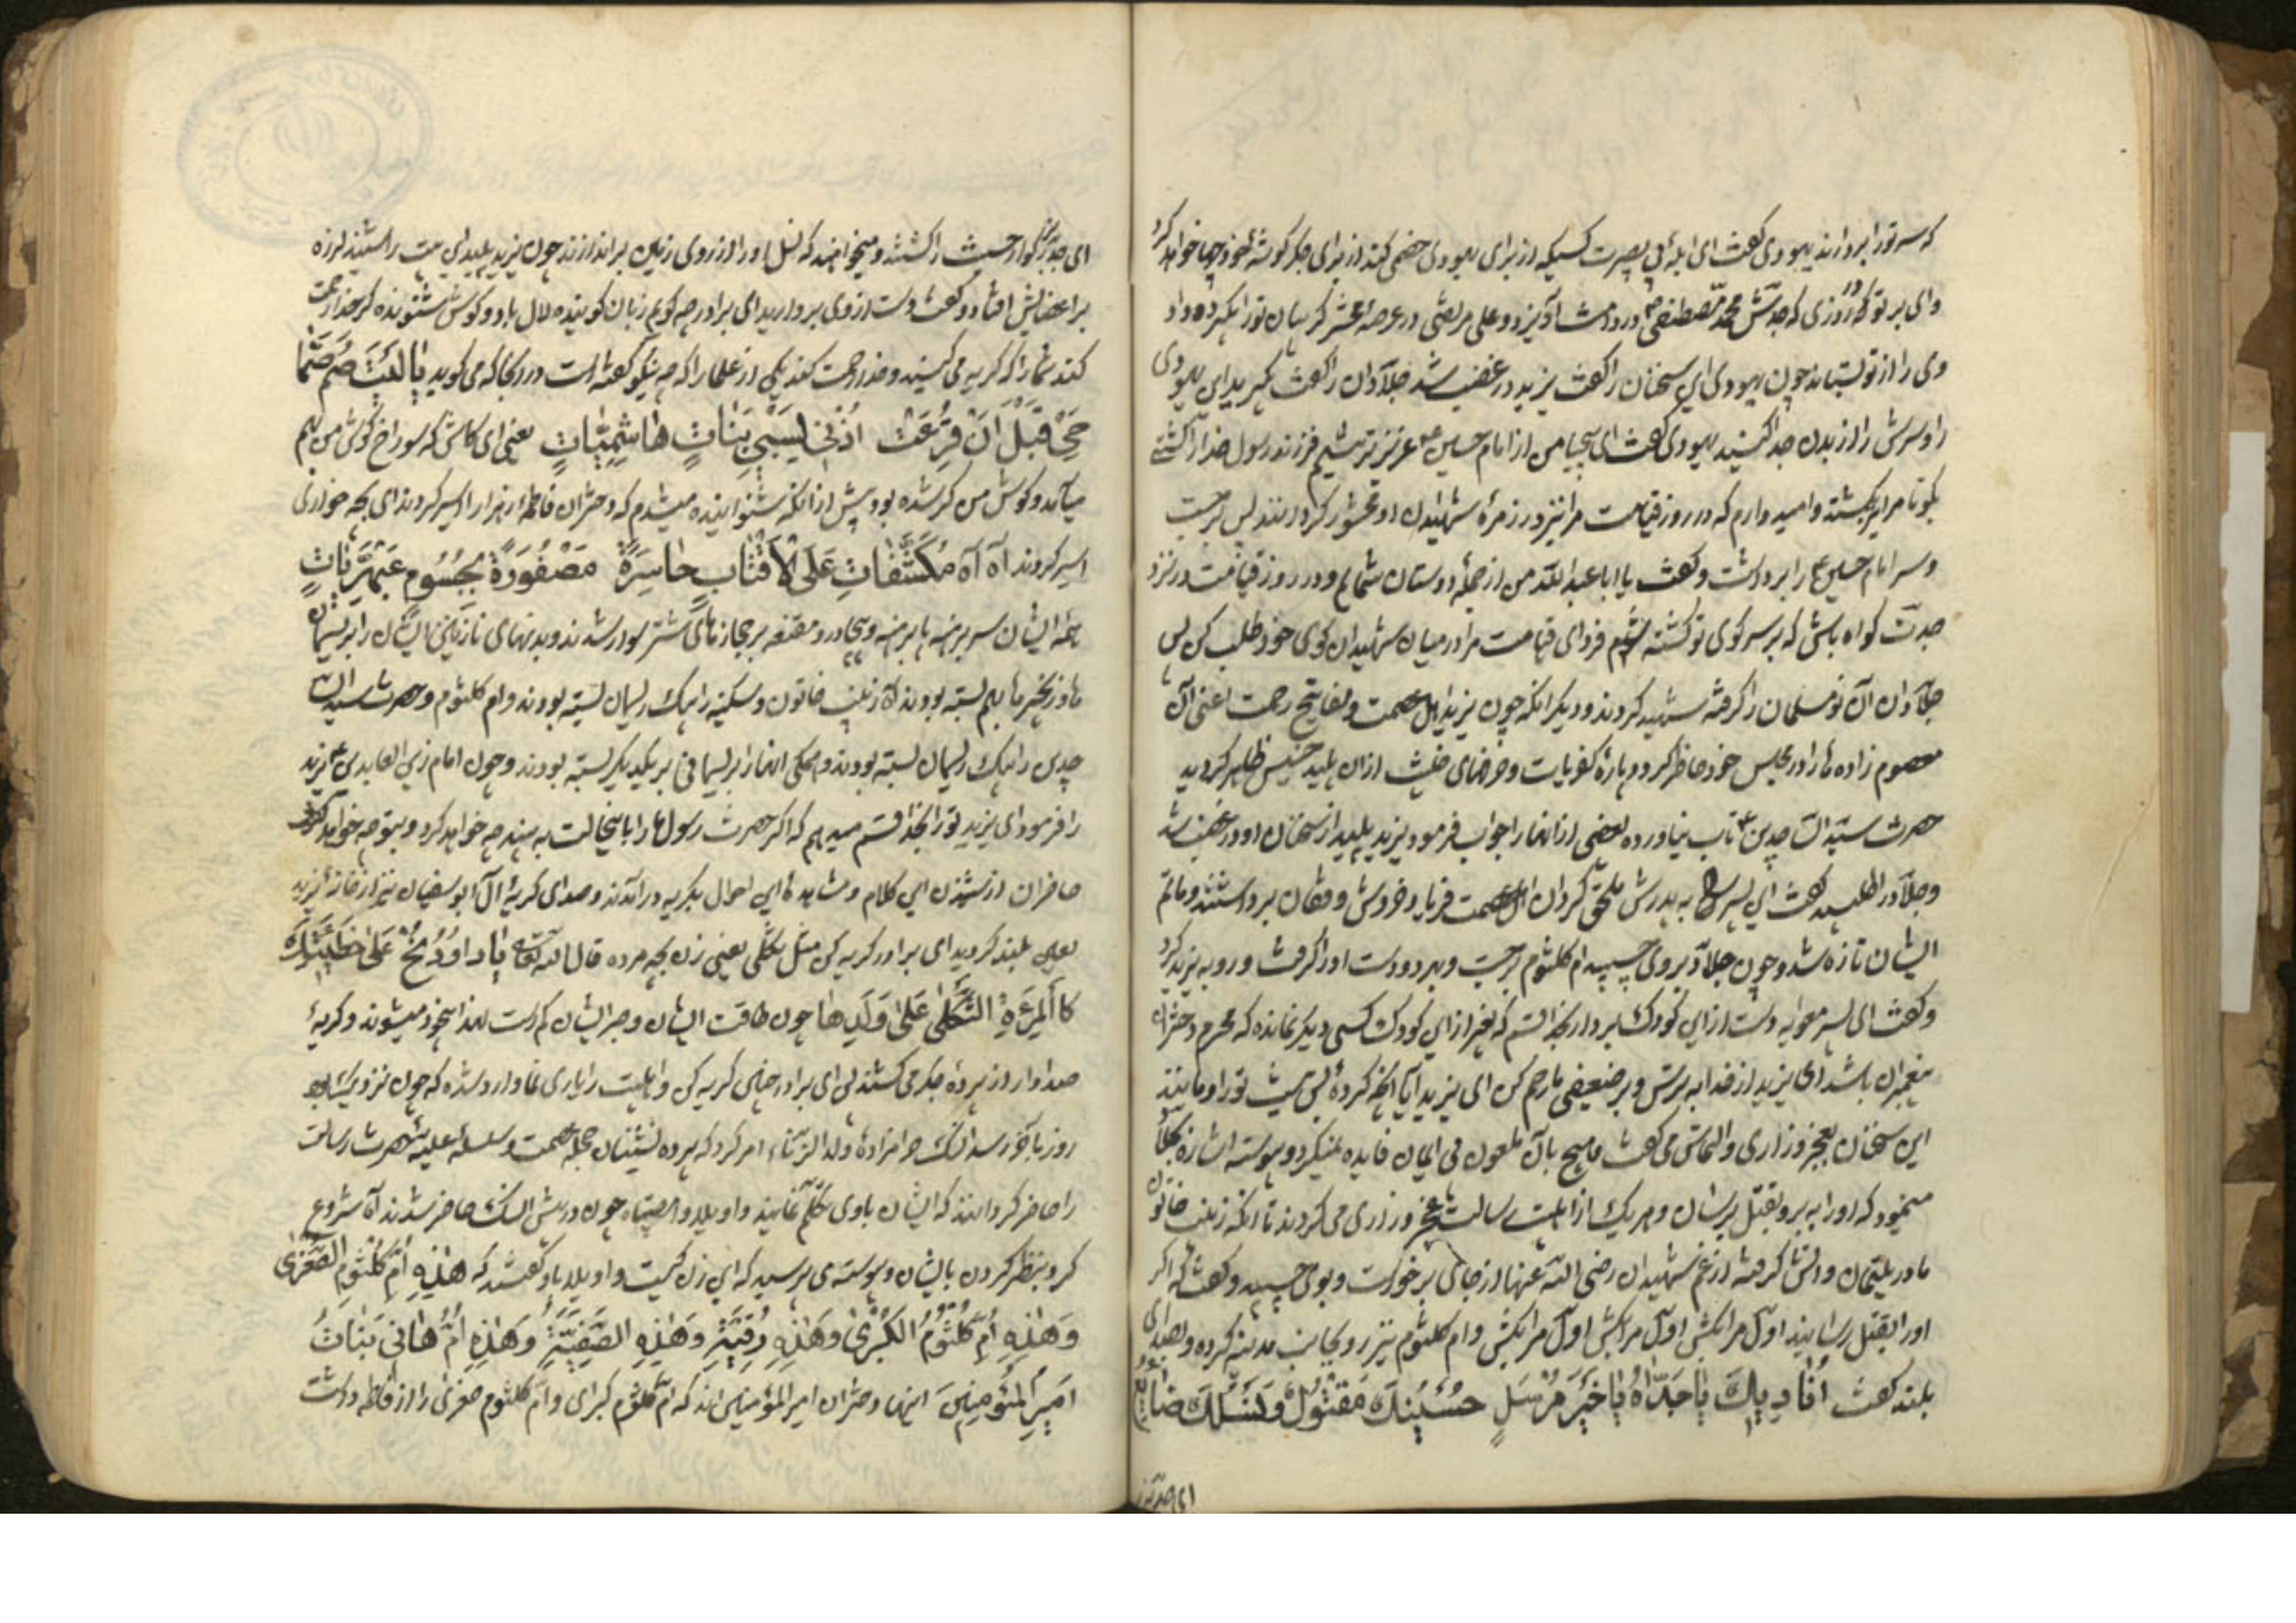 که سر تو را بردارند یهودی گفت ای ابله بی بصیرت کسیکه از برای یهودی خصمی کند از برای جگر گوشهٔ خود چها خواهد کرد
وای بر تو در روزی که جدش محمد مصطفی در دامنت آویزد و علی مرتضی در عرصهٔ محشر گریبان تو را بگیرد و داد
وی را از تو بستاند چون یهودی این سخنان را گفت یزید در غضب شد جلادان را گفت بگیرید این یهودی
را و سرش را از بدن جدا کنید یهودی گفت ای بیحیا من از امام حسین عزیزتر نیستم فرزند رسول خدا را کشتی
بگو تا مرا نیز بکشند و امیدوارم که در روز قیامت مرا نیز در زمرهٔ شهیدان او محشور گردانند پس برجست
و سر امام حسین را برداشت و گفت یا ابا عبدالله من از جملهٔ دوستان شمایم و در روز قیامت در نزد
جدت گواه باش که بر سر کوی تو کشته شدم فردای قیامت مرا در میان شهیدان کوی خود طلب کن پس
جلادان آن نو مسلمان را گرفته شهید کردند و دیگر آنکه چون یزید اهل عصمت و مفاتیح رحمت اعنی آن
معصوم زاده ها را در مجلس خود حاضر کرد و پارهٔ کفریات و خرفهای خبث از آن پلید خسیس ظاهر گردید
حضرت سید الساجدین تاب نیاورده بعضی از آنها را جواب فرمود یزید پلید از سخنان او در غضب شد
و جلاد را طلبید گفت این پسر را به پدرش ملحق گردان اهل عصمت فریاد و خروش و فغان برداشتند و ماتم
ایشان تازه شد و چون جلاد بر وی چسبید ام کلثوم برجست و بهر دو دست او را گرفت و رو به یزید کرد
و گفت ای پسر معویه دست از این کودک بردار بخدا قسم که بغیر از این کودک کسی دیگر نمانده که محرم دختران
پیغمبران باشد ای یزید از خدا بترس و بر ضعیفی ما رحم کن ای یزید آیا آنچه کردهٔ بس نیست تو را و مانند
این سخنان بعجز و زاری و التماس می گفت و هیچ بآن ملعون بی ایمان فایده نمیکرد و پیوسته اشاره بجلاد
مینمود که او را ببر و بقتل برسان و هر یک از اهلبیت رسالت عجز و زاری می کردند تا آنکه زینب خاتون
مادر یتیمان و آتش گرفته از غم شهیدان رضی الله عنها از جای برخواست و بوی چسبید و گفت که اگر
او را بقتل رسانید اول مرا بکش اول مرا بکش اول مرا بکش و ام کلثوم نیز رو بجانب مدینه کرده و بصدای
بلند گفت أُنَادِیكَ یَا جَدَّاهُ یَا خَیْرَ مُرْسَلٍ حُسَیْنُكَ مَقْتُولٌ وَنَسْلُكَ ضَائِعٌ
ای جد بزرگوار حسینت را کشتند و میخواهند که نسل او را از روی زمین براندازند چون یزید پلید این بیت را شنید لرزه
بر اعضایش افتاد و گفت دست از وی بردارید ای برادر چه گویم زبان گوینده لال باد و گوش شنونده کر خدا رحمت
کند شما را که گریه می کنید و خدا رحمت کند یکی از علما را که چه نیکو گفته است در آنجا که می گوید یَا لَیْتَ صُمَّ صِمَاخِی
قَبْلَ أَنْ قُرِعَتْ أُذُنِي لِسَبْيِ بَنَاتٍ هَاشِمِیَّاتٍ یعنی ای کاش که سوراخ گوش من بهم
میآمد و گوش من کر شده بود پیش از آنکه شنوانیده میشدم که دختران فاطمه زهرا را اسیر کردند ای بچه خواری
اسیر کردند آه آه مُكَشَّفَاتٍ عَلَى الْأَقْتَابِ حَاسِرَةً مَصْفُودَةً بِجُسُومٍ
همه ایشان سر برهنه پا برهنه و بیچادر و مقنعه بر جهازهای شتر سوار شدند و بدنهای نازنین ایشان را بریسمان
ها و زنجیرها بهم بسته بودند که زینب خاتون و سکینه را بیک ریسمان بسته بودند و ام کلثوم و حضرت سید السا
جدین را بیک ریسمان بسته بودند و همگی آنها را بریسمانی بر یکدیگر بسته بودند و چون امام زین العابدین یزید
را فرمود ای یزید تو را بخدا قسم میدهم که اگر حضرت رسول ما را باینحالت به بیند چه خواهد کرد و بتو چه خواهد گفت
حاضران از شنیدن این کلام و مشاهدهٔ این احوال بگریه درآمدند و صدای گریهٔ آل ابوسفیان نیز از خانهٔ یزید
بعین بلند گردید ای برادر گریه کن مثل ثکلی یعنی زن بچه مرده قال الله تعالی یَا دَاوُدُ نُحْ عَلَى خَطِیئَتِكَ
كَالْمَرْءَةِ الثَّكْلَى عَلَى وَلَدِهَا چون طاقت ایشان و صبر ایشان کم است لهذا بیخود میشوند و گریهٔ
صدادار از پردهٔ جگر می کشند پس ای برادر چنین گریه کن و اهلبیت را یاری نما وارد شده که چون نزدیک به
روز بآخر رسد آن سگ حرامزادهٔ ولد الزناء امر کرد که پرده نشینان حجلهٔ عصمت و سلسلهٔ علیهٔ حضرت رسالت
را حاضر گردانند که ایشان باوی تکلم نمایند واویلا وامصیبتاه چون در پیش آن سگ حاضر شدند آه شروع
کرد بنظر کردن بایشان و پیوسته می پرسید که این زن کیست واویلا باو گفتند که هٰذِهِ أُمُّ كُلْثُومِ الصُّغْرَى
وَهٰذِهِ أُمُّ كُلْثُومُ الكُبْرَى وَهٰذِهِ رُقَیَّةُ وَهٰذِهِ الصَّفِیَّةُ وَهٰذِهِ أُمُّ هَانِي بَنَاتُ
أَمِیرِ الْمُؤْمِنِینَ اینها دختران امیر المؤمنین اند که ام کلثوم کبرای و ام کلثوم صغری را از فاطمه داشت